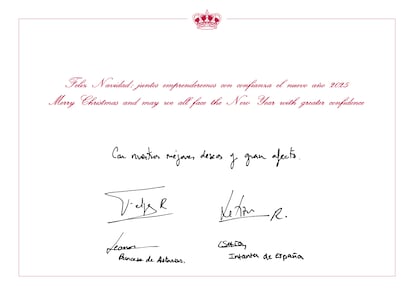 Feliz Navidad; juntos emprenderemos con confianza el nuevo año 2025
Merry Christmas and may we all face the New Year with greater confidence
Con nuestros mejores deseos y gran afecto.
Felipe R
Letizia R.
Leonor
Princesa de Asturias.
Sofía
Infanta de España